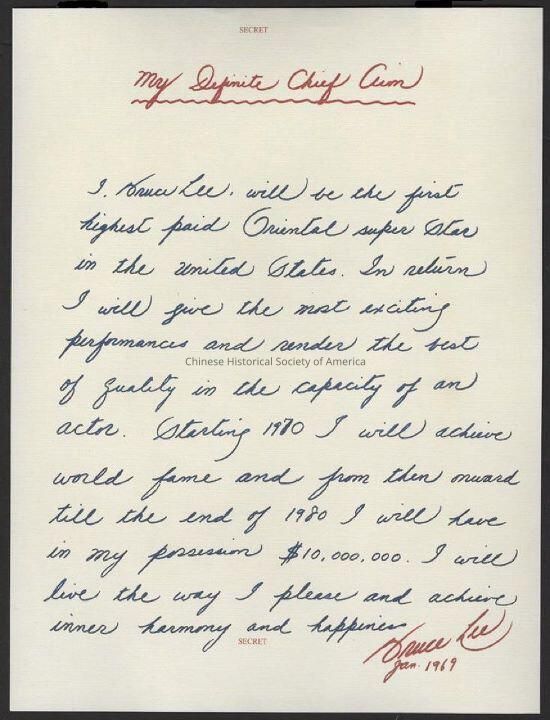 SECRET
My Definite Chief Aim
I, Bruce Lee, will be the first
highest paid Oriental super star
in the United States. In return
I will give the most exciting
performances and render the best
Chinese Historical Society of America
of quality in the capacity of an
actor. Starting 1970 I will achieve
world fame and from then onward
till the end of 1980 I will have
in my possession $10,000,000. I will
live the way I please and achieve
inner harmony and happiness
SECRET
Bruce Lee
Jan. 1969